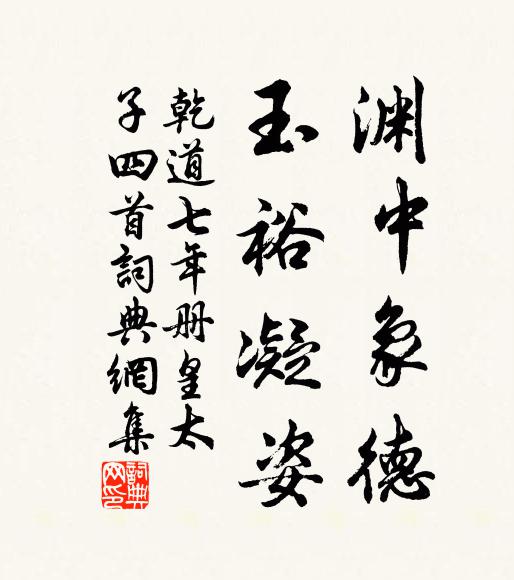 渊中象德
玉裕凝姿
乾道七年册皇太
子四首詞典網集
詞典网印